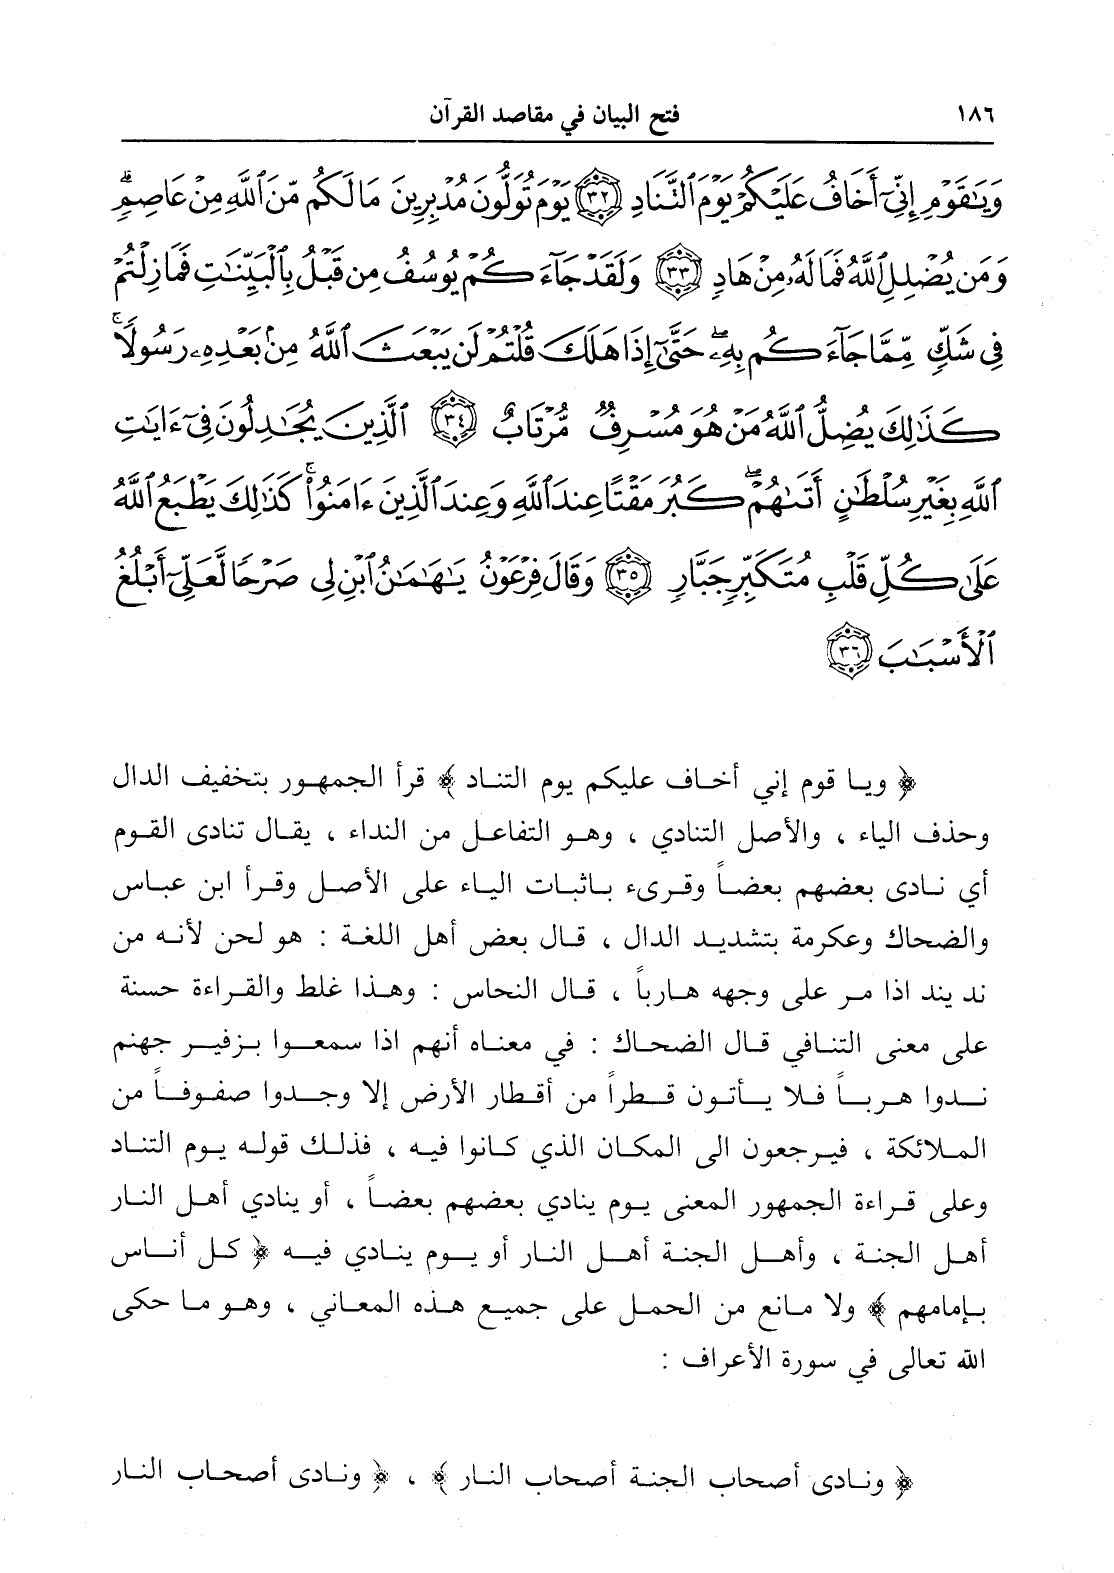 ١٨٦ فتح البيان في مقاصد القرآن
وَيَٰقَوْمِ إِنِّىٓ أَخَافُ عَلَيْكُمْ يَوْمَ ٱلتَّنَادِ ٣٢ يَوْمَ تُوَلُّونَ مُدْبِرِينَ مَا لَكُم مِّنَ ٱللَّهِ مِنْ عَاصِمٍ ۗ
وَمَن يُضْلِلِ ٱللَّهُ فَمَا لَهُۥ مِنْ هَادٍ ٣٣ وَلَقَدْ جَآءَكُمْ يُوسُفُ مِن قَبْلُ بِٱلْبَيِّنَٰتِ فَمَا زِلْتُمْ
فِى شَكٍّ مِّمَّا جَآءَكُم بِهِۦ ۖ حَتَّىٰٓ إِذَا هَلَكَ قُلْتُمْ لَن يَبْعَثَ ٱللَّهُ مِنۢ بَعْدِهِۦ رَسُولًا ۚ
كَذَٰلِكَ يُضِلُّ ٱللَّهُ مَنْ هُوَ مُسْرِفٌ مُّرْتَابٌ ٣٤ ٱلَّذِينَ يُجَٰدِلُونَ فِىٓ ءَايَٰتِ
ٱللَّهِ بِغَيْرِ سُلْطَٰنٍ أَتَىٰهُمْ ۖ كَبُرَ مَقْتًا عِندَ ٱللَّهِ وَعِندَ ٱلَّذِينَ ءَامَنُوا۟ ۚ كَذَٰلِكَ يَطْبَعُ ٱللَّهُ
عَلَىٰ كُلِّ قَلْبِ مُتَكَبِّرٍ جَبَّارٍ ٣٥ وَقَالَ فِرْعَوْنُ يَٰهَٰمَٰنُ ٱبْنِ لِى صَرْحًا لَّعَلِّىٓ أَبْلُغُ
ٱلْأَسْبَٰبَ ٣٦
﴿ ويا قوم إني أخاف عليكم يوم التناد ﴾ قرأ الجمهور بتخفيف الدال
وحذف الياء ، والأصل التنادي ، وهو التفاعل من النداء ، يقال تنادى القوم
أي نادى بعضهم بعضاً وقرىء باثبات الياء على الأصل وقرأ ابن عباس
والضحاك وعكرمة بتشديد الدال ، قال بعض أهل اللغة : هو لحن لأنه من
ند يند اذا مر على وجهه هارباً ، قال النحاس : وهذا غلط والقراءة حسنة
على معنى التنافي قال الضحاك : في معناه أنهم اذا سمعوا بزفير جهنم
ندوا هرباً فلا يأتون قطراً من أقطار الأرض إلا وجدوا صفوفاً من
الملائكة ، فيرجعون الى المكان الذي كانوا فيه ، فذلك قوله يوم التناد
وعلى قراءة الجمهور المعنى يوم ينادي بعضهم بعضاً ، أو ينادي أهل النار
أهل الجنة ، وأهل الجنة أهل النار أو يوم ينادي فيه ﴿ كل أناس
بإمامهم ﴾ ولا مانع من الحمل على جميع هذه المعاني ، وهو ما حكى
الله تعالى في سورة الأعراف :
﴿ ونادى أصحاب الجنة أصحاب النار ﴾ ، ﴿ ونادى أصحاب النار